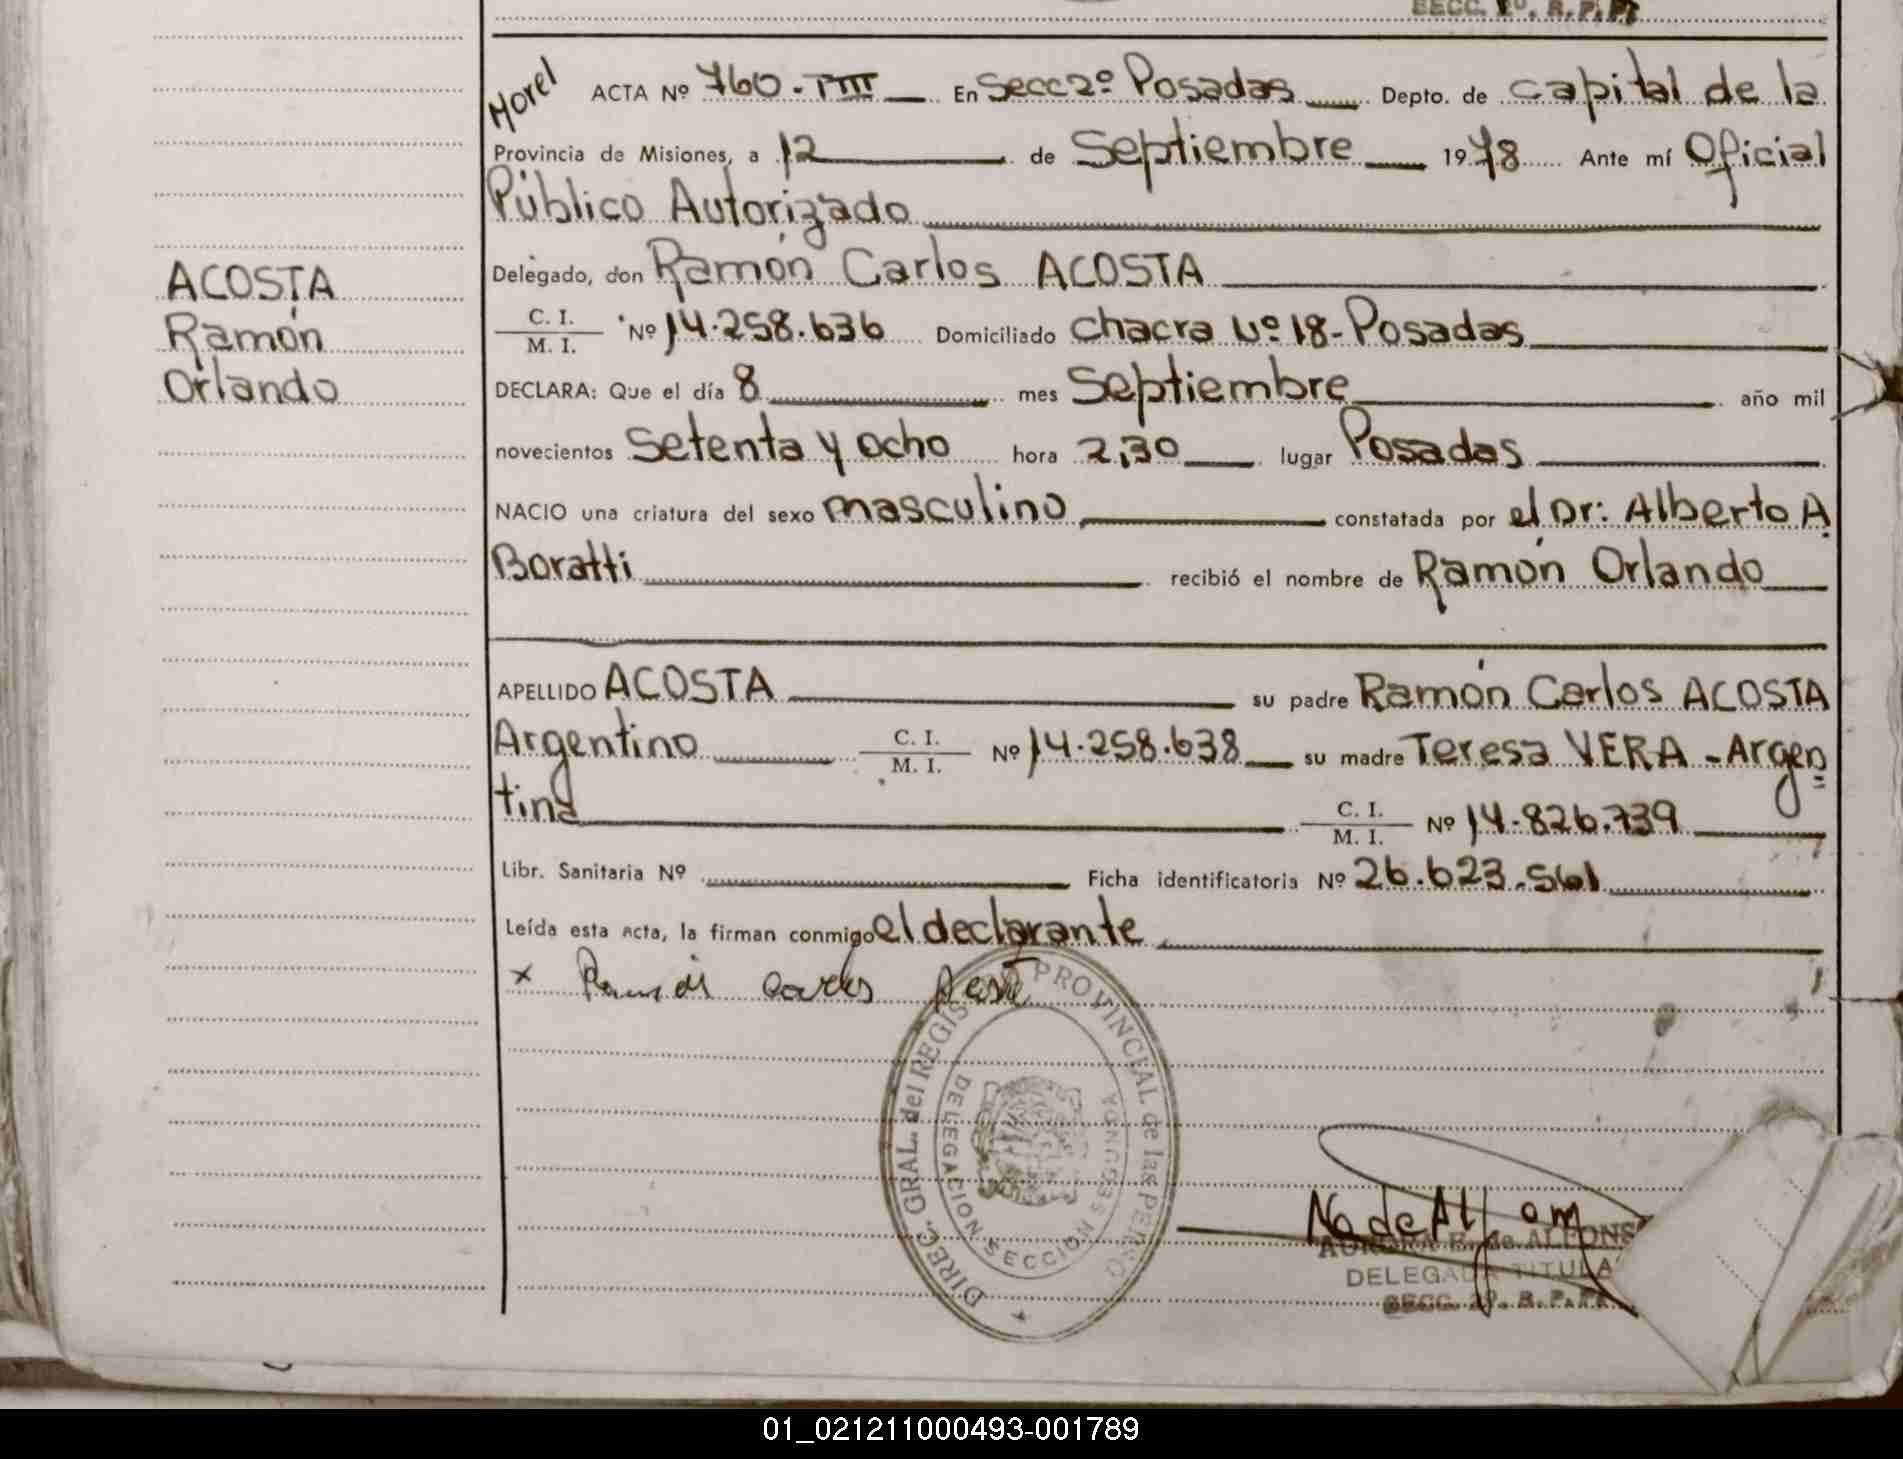 SECC. 2º. R. P. PS
Morel ACTA Nº 760 - T III En Secc 2º Posadas Depto. de capital de la
Provincia de Misiones, a 12 de Septiembre 1978 Ante mí Oficial
Público Autorizado
Delegado, don Ramón Carlos ACOSTA
C. I. / M. I. Nº 14.258.636 Domiciliado chacra Nº 18 - Posadas
DECLARA: Que el día 8 mes Septiembre año mil
novecientos Setenta y ocho hora 2,30 lugar Posadas
NACIO una criatura del sexo masculino, constatada por el Dr: Alberto A.
Boratti recibió el nombre de Ramón Orlando
APELLIDO ACOSTA su padre Ramón Carlos ACOSTA
Argentino C. I. / M. I. Nº 14.258.638 su madre Teresa VERA - Argen=
tina C. I. / M. I. Nº 14.826.739
Libr. Sanitaria Nº Ficha identificatoria Nº 26.623.561
Leída esta acta, la firman conmigo el declarante
x Ramón Carlos
ACOSTA
Ramón
Orlando
DIREC. GRAL. del REGISTRO PROVINCIAL de las PERSO
DELEGACION SECCION SEGUNDA
de ALFONS
DELEGADA TITULA
SECC. 2º. R. P. PS
01_021211000493-001789